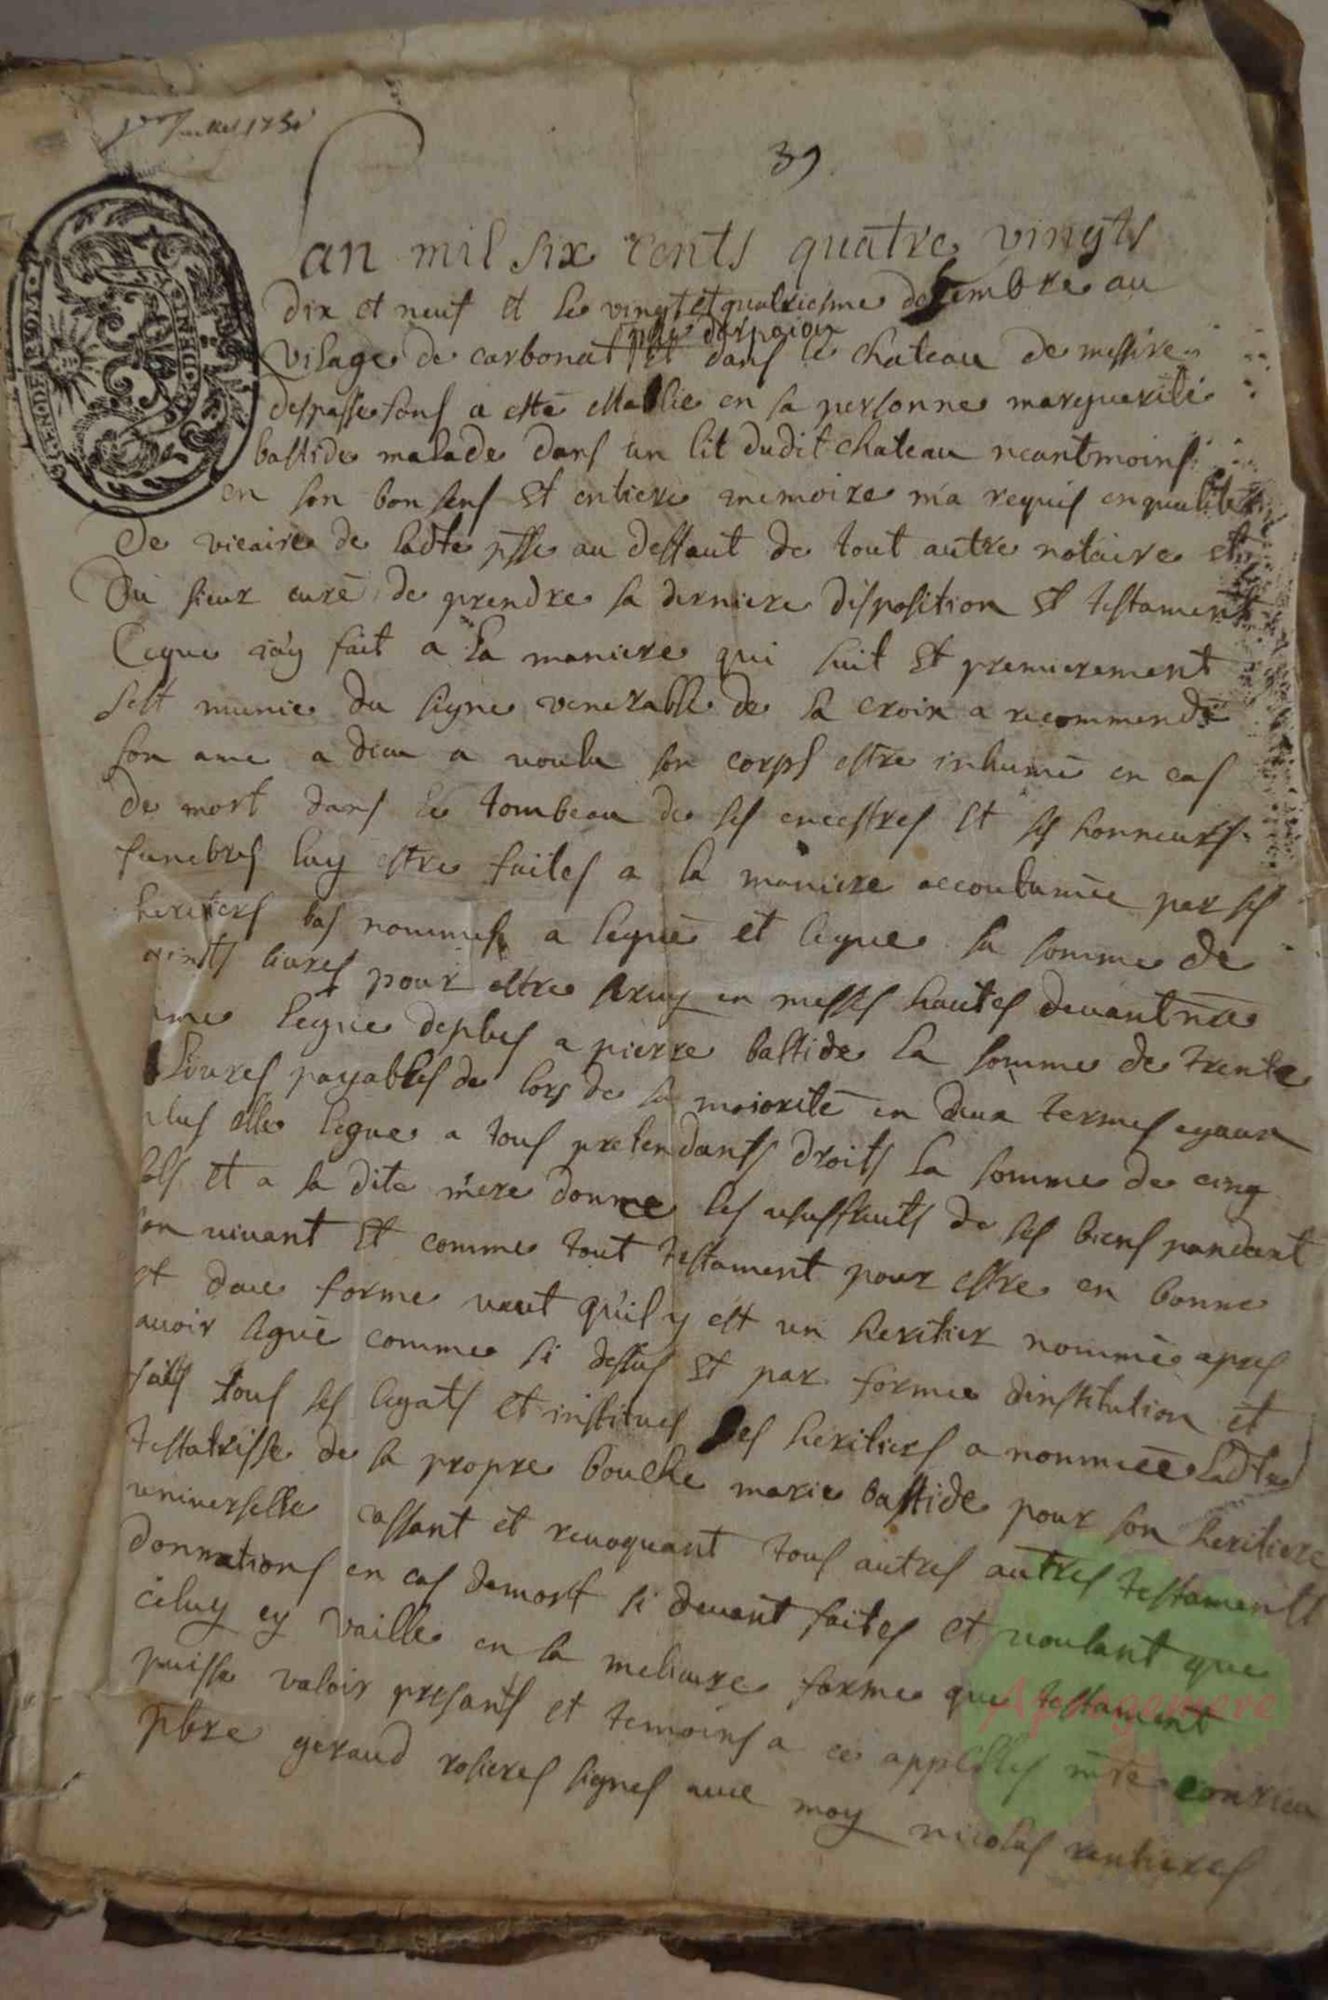 39
Lan mil six cents quatre vingts
dix et neuf et le vingt et quatriesme desembre au
vilage de carbonat psse darpaion et dans le chateau de messire
despassefons a esté establie en sa personne marguerite
bastide malade dans un lit dudit chateau neantmoins
en son bon sens et entiere memoire m'a requis en qualité
de vicaire de ladte psse au deffaut de tout autre notaire et
du sieur curé de prendre sa derniere disposition et testament
Ceque j'ay fait a la maniere qui suit et premierement
sest munie du signe venerable de la croix a recommendé
son ame a dieu a voulu son corps estre inhumé en cas
de mort dans le tombeau de ses encestres et ses honneurs
funebres luy estre faites a la maniere accoutumée par ses
heritiers bas nommés a legué et legue la somme de
vints livres pour estre en messes hautes devant nre
legue deplus a pierre bastide la somme de trente
livres payables de lors de sa majorité en deux termes egaux
plus elle legue a tous pretendants droits la somme de cinq
sols et a sa dite mere donne les usuffruits de ses biens pandant
son vivant et comme tout testament pour estre en bonne
et deue forme veut qu'il y est un heritier nommé apres
avoir legué comme si dessus et par forme dinstitution et
faits tous ses legats et institues ses heritiers a nommée ladte
testatrisse de sa propre bouche marie bastide pour son heritiere
universelle cassant et revoquant tous autres autres testaments
donnations en cas demort si devant faites et voulant que
celuy cy vaille en la melieure forme que testament
puisse valoir presants et temoins a ce appellés mre
pbre geraud rosieres signes avec moy nicolas
GENERALITE DE RIOM
Apragenere